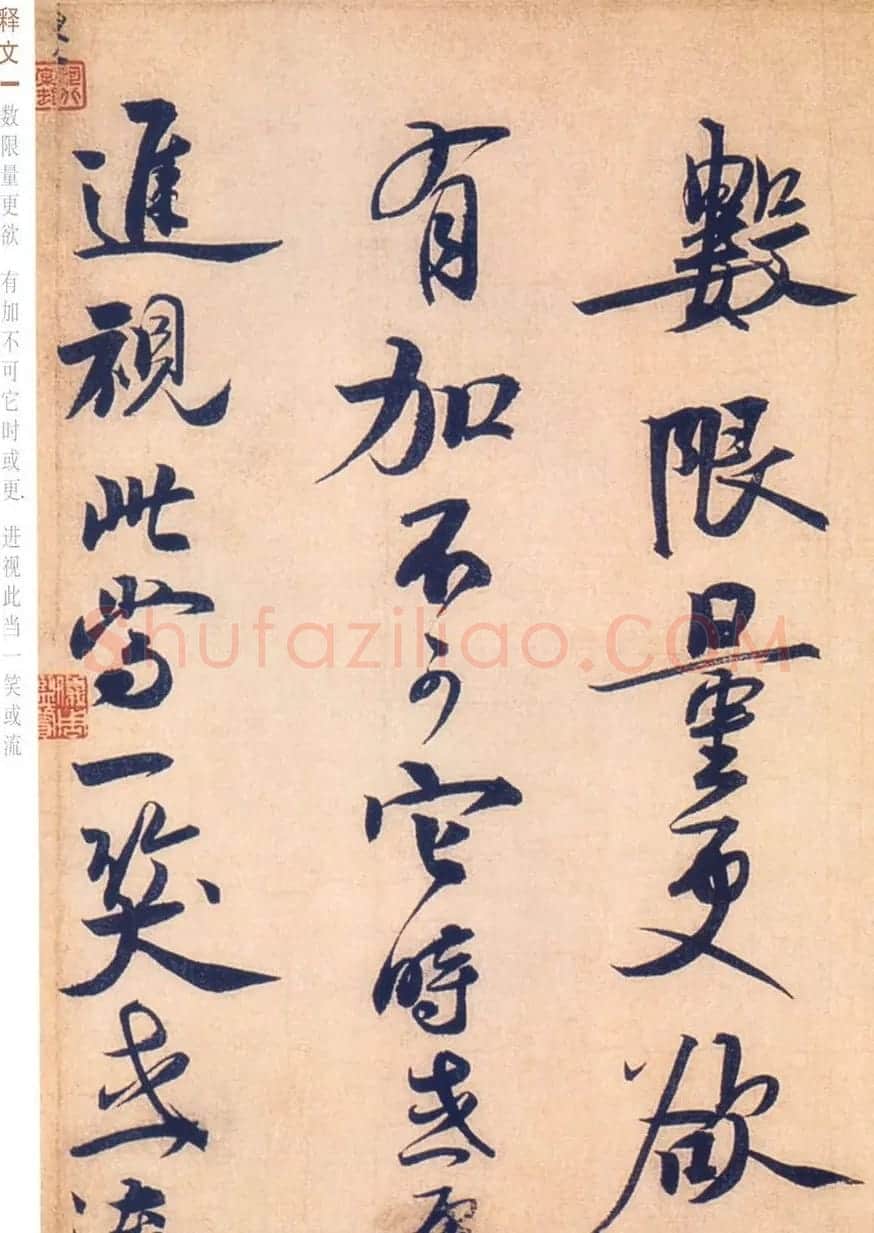 數限量更欲
有加不可它時或更
進視此當一笑或流
释文
数限量更欲 有加不可它时或更. 进视此当一笑或流
Shufaziliao.COM